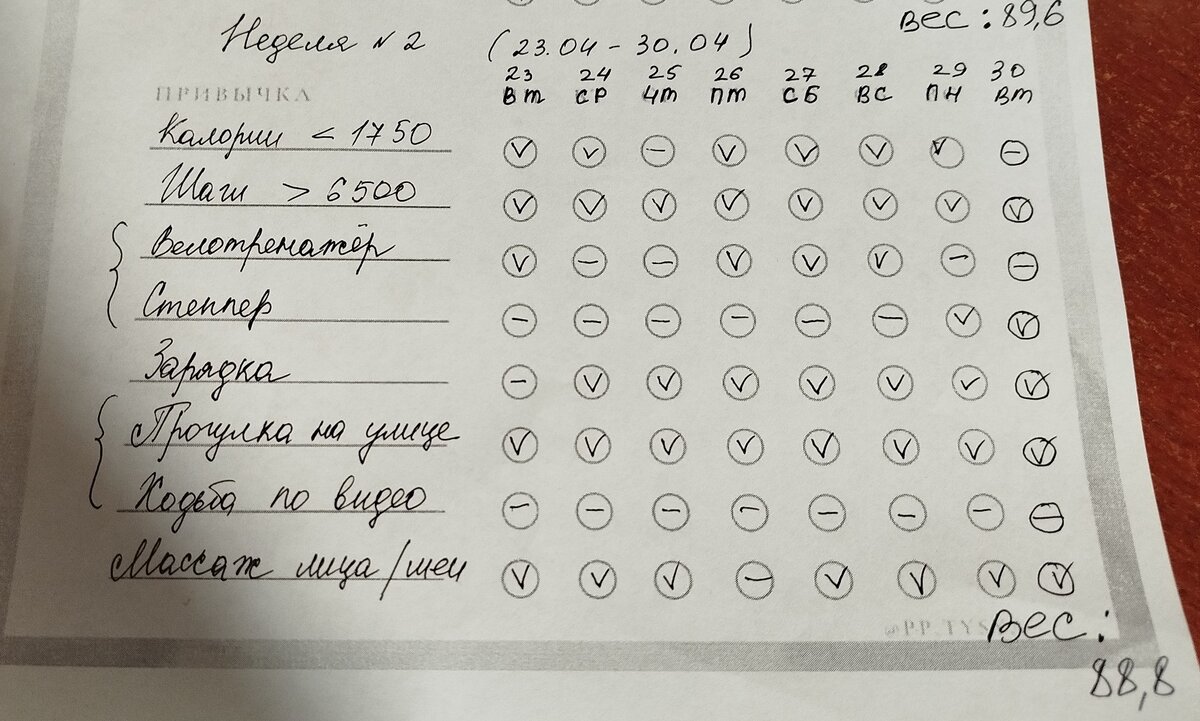 Вес : 89,6
Неделя №2 (23.04 - 30.04)
23 24 25 26 27 28 29 30
ПРИВЫЧКА Вт СР ЧТ ПТ СБ ВС ПН Вт
Калории < 1750 ✓ ✓ – ✓ ✓ ✓ ✓ –
Шаги > 6500 ✓ ✓ ✓ ✓ ✓ ✓ ✓ ✓
Велотренажёр ✓ – – ✓ ✓ ✓ – –
Степпер – – – – – – ✓ ✓
Зарядка – ✓ ✓ ✓ ✓ ✓ ✓ ✓
Прогулка на улице ✓ ✓ ✓ ✓ ✓ ✓ ✓ ✓
Ходьба по видео – – – – – – – –
Массаж лица/шеи ✓ ✓ ✓ – ✓ ✓ ✓ ✓
Вес :
88,8